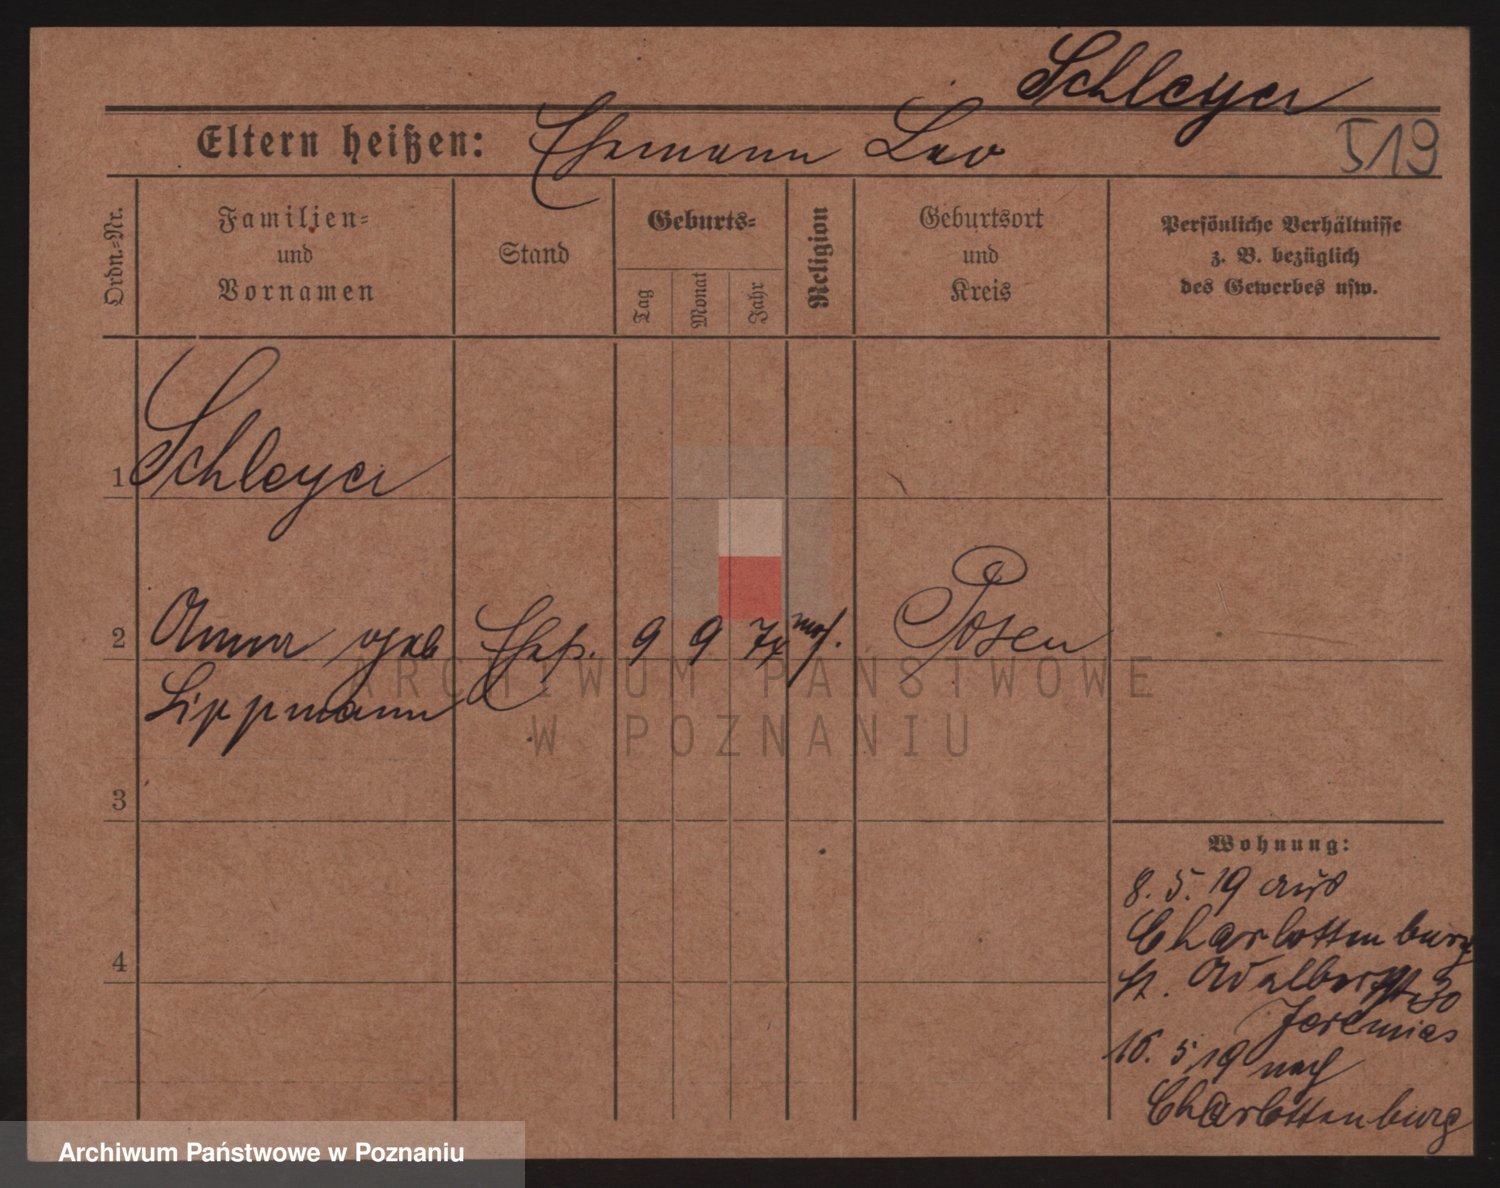 Schleyer
Eltern heißen: Ehemann Leo
519
Ordn.-Nr.
Familien- und Vornamen
Stand
Geburts-
Tag
Monat
Jahr
Religion
Geburtsort und Kreis
Persönliche Verhältnisse
z. B. bezüglich
des Gewerbes usw.
1
Schleyer
2
Anna geb
Lippmann
Ehef.
9
9
mos.
Posen
3
4
Wohnung:
8. 5. 19 aus
Charlottenburg
St. Adalbertstr 30
Jeremias
16. 5 19 nach
Charlottenburg
ARCHIWUM PAŃSTWOWE
W POZNANIU
Archiwum Państwowe w Poznaniu